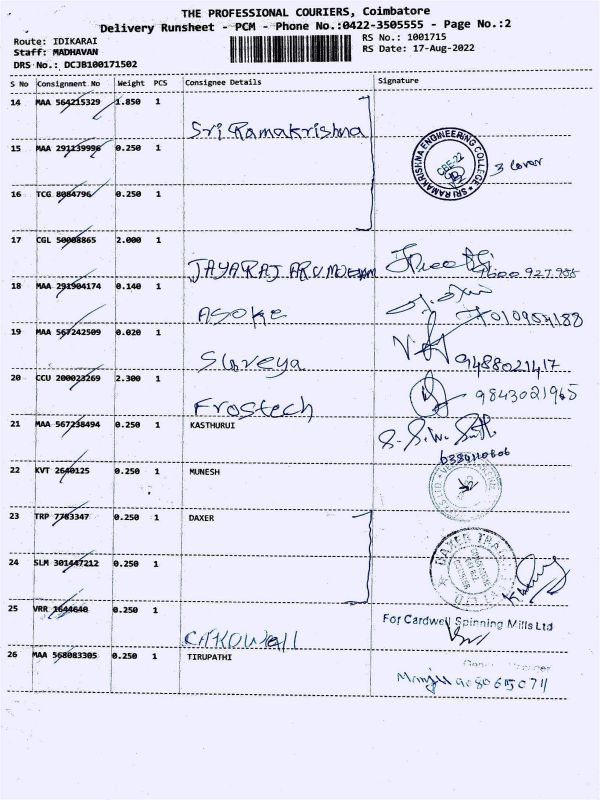 THE PROFESSIONAL COURIERS, Coimbatore
Delivery Runsheet - PCM - Phone No.:0422-3505555 - Page No.:2
Route: IDIKARAI
RS No.: 1001715
Staff: MADHAVAN
RS Date: 17-Aug-2022
DRS No.: DCJB100171502
S No Consignment No Weight PCS Consignee Details Signature
14 MAA 564215329 1.850 1
Sri Ramakrishna
SRI RAMAKRISHNA ENGINEERING COLLEGE
CBE-22
3 cover
15 MAA 291139996 0.250 1
16 TCG 8084796 0.250 1
17 CGL 50008865 2.000 1
JAYARAJ
18 MAA 291904174 0.140 1
ASOKE
19 MAA 567242509 0.020 1
9488021417
20 CCU 200023269 2.300 1
Frostech
9843021965
21 MAA 567238494 0.250 1 KASTHURUI
22 KVT 2640125 0.250 1 MUNESH
23 TRP 7763347 0.250 1 DAXER
DAXER
24 SLM 301447212 0.250 1
25 VRR 1644640 0.250 1
For Cardwell Spinning Mills Ltd
26 MAA 568083305 0.250 1 TIRUPATHI